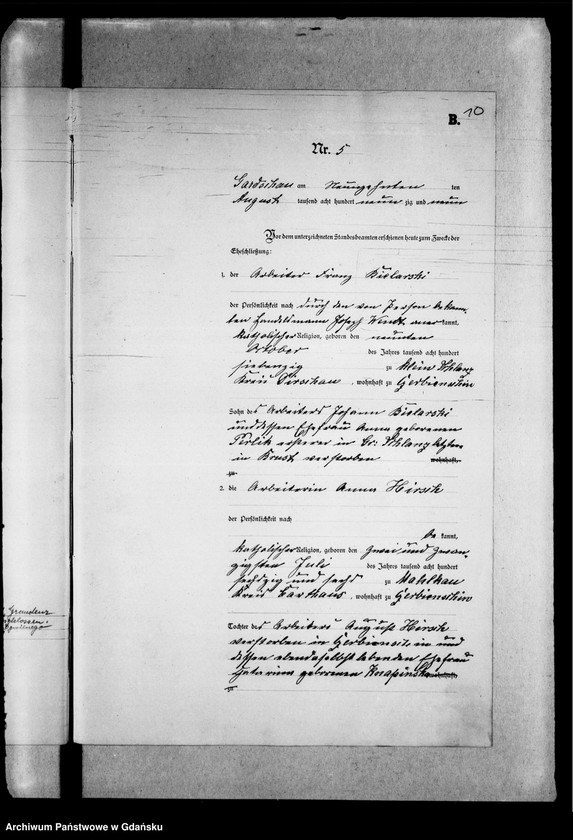 B. 10
Nr. 5
Gardschau am Neunzehnten ten
August tausend acht hundert neun zig und neun
Vor dem unterzeichneten Standesbeamten erschienen heute zum Zwecke der
Eheschließung:
1. der Arbeiter Franz Bielarski
der Persönlichkeit nach durch den von Person bekann-
ten Handelsmann Joseph Wendt aner kannt,
katholischer Religion, geboren den neunten
October des Jahres tausend acht hundert
siebenzig zu Klein Schlanz
Kreis Dirschau, wohnhaft zu Gerbionschin
Sohn des Arbeiters Johann Bielarski
und dessen Ehefrau Anna geborenen
ersterer in Gr. Schlanz letztere
in Brust verstorben wohnhaft
zu
2. die Arbeiterin Anna Hirsch
der Persönlichkeit nach
be kannt,
katholischer Religion, geboren den zwei und zwan-
zigsten Juli des Jahres tausend acht hundert
sechszig und sechs zu Mahlkau
Kreis Karthaus, wohnhaft zu Gerbionschin
Tochter des Arbeiters August Hirsch
verstorben in und
dessen ebendaselbst lebenden Ehefrau
geborenen wohnhaft
zu
Graudenz
geschlossen.
Archiwum Państwowe w Gdańsku